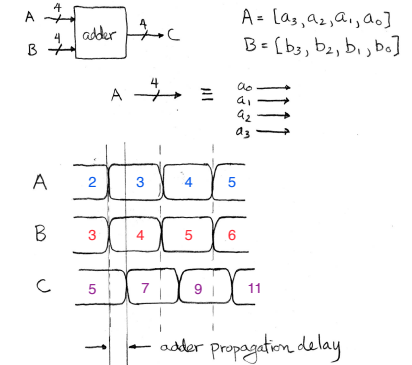 A 4 adder 4 C
B 4
A = [a₃, a₂, a₁, a₀]
B = [b₃, b₂, b₁, b₀]
A 4 ≡ a₀
a₁
a₂
a₃
A 2 3 4 5
B 3 4 5 6
C 5 7 9 11
adder propagation delay